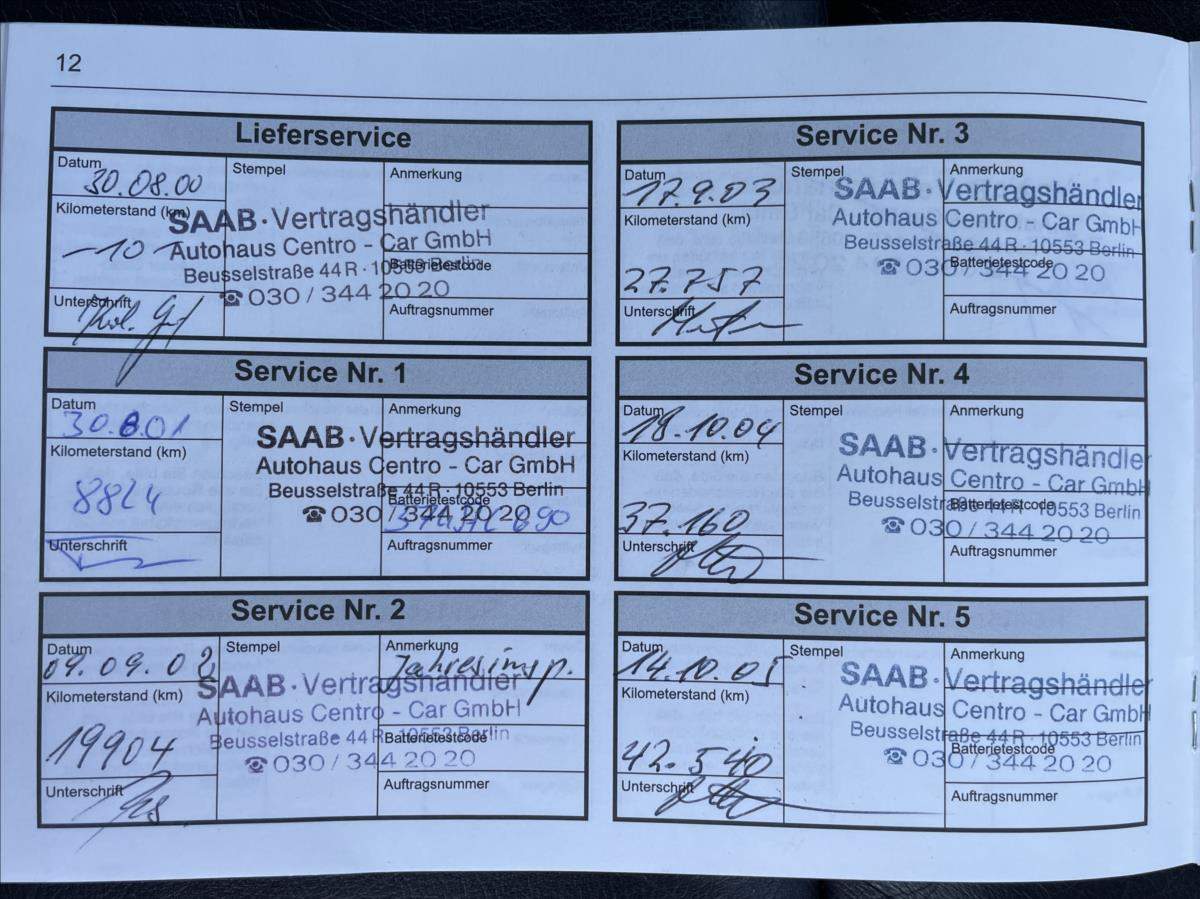 12
Lieferservice
Datum
30.08.00
Stempel
Anmerkung
Kilometerstand (km)
SAAB · Vertragshändler
Autohaus Centro - Car GmbH
Beusselstraße 44 R · 10553 Berlin
☎ 030 / 344 20 20
—10—
Batterietestcode
Unterschrift
Auftragsnummer
Service Nr. 1
Datum
30.8.01
Stempel
Anmerkung
Kilometerstand (km)
SAAB · Vertragshändler
Autohaus Centro - Car GmbH
Beusselstraße 44 R · 10553 Berlin
☎ 030 / 344 20 20
8824
Batterietestcode
Unterschrift
Auftragsnummer
Service Nr. 2
Datum
09.09.02
Stempel
Anmerkung
Jahresinsp.
Kilometerstand (km)
SAAB · Vertragshändler
Autohaus Centro - Car GmbH
Beusselstraße 44 R · 10553 Berlin
☎ 030 / 344 20 20
19904
Batterietestcode
Unterschrift
Auftragsnummer
Service Nr. 3
Datum
17.9.03
Stempel
Anmerkung
Kilometerstand (km)
SAAB · Vertragshändler
Autohaus Centro - Car GmbH
Beusselstraße 44 R · 10553 Berlin
☎ 030 / 344 20 20
27.757
Batterietestcode
Unterschrift
Auftragsnummer
Service Nr. 4
Datum
18.10.04
Stempel
Anmerkung
Kilometerstand (km)
SAAB · Vertragshändler
Autohaus Centro - Car GmbH
Beusselstraße 44 R · 10553 Berlin
☎ 030 / 344 20 20
37.160
Batterietestcode
Unterschrift
Auftragsnummer
Service Nr. 5
Datum
14.10.05
Stempel
Anmerkung
Kilometerstand (km)
SAAB · Vertragshändler
Autohaus Centro - Car GmbH
Beusselstraße 44 R · 10553 Berlin
☎ 030 / 344 20 20
42.540
Batterietestcode
Unterschrift
Auftragsnummer